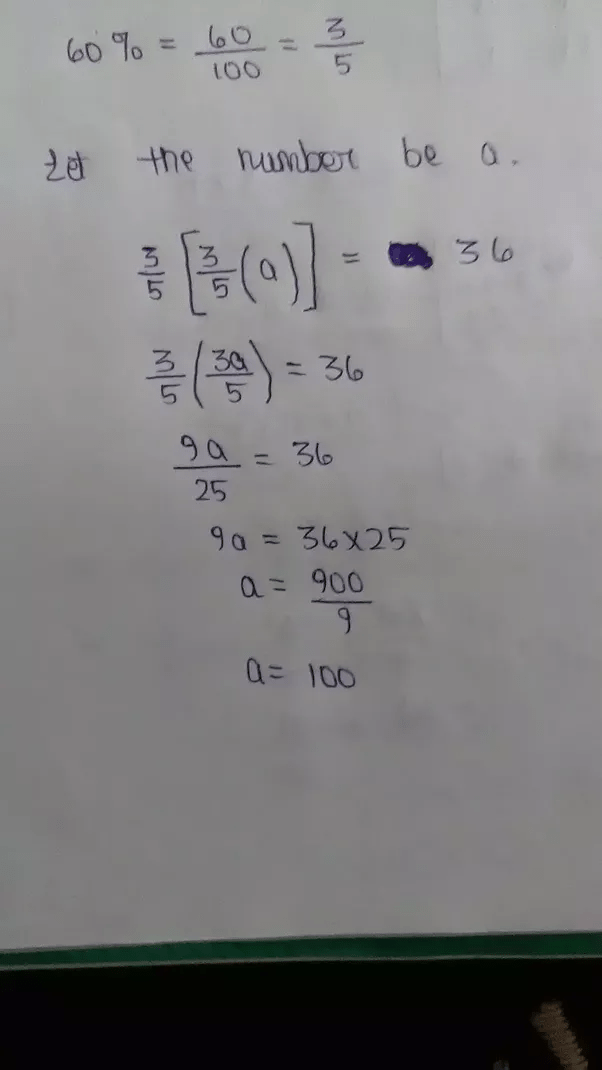 60% = 60/100 = 3/5
Let the number be a.
3/5 [3/5 (a)] = 36
3/5 (3a/5) = 36
9a/25 = 36
9a = 36×25
a = 900/9
a = 100